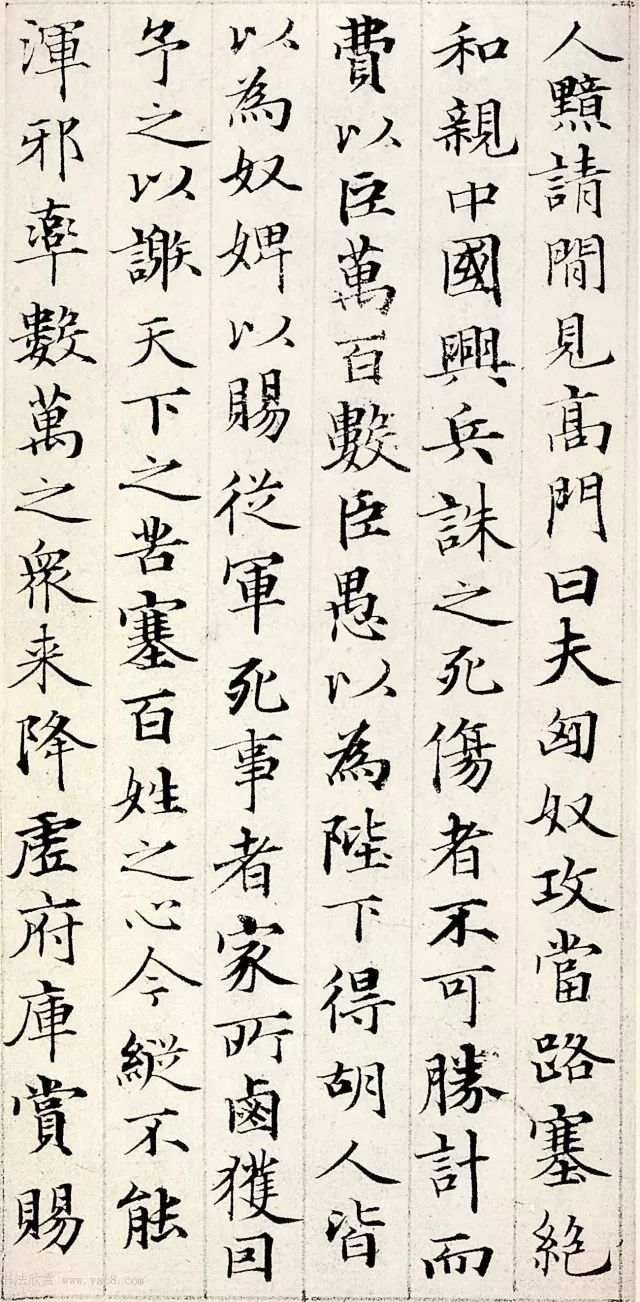 人黯請閒見高門曰夫匈奴攻當路塞絶
和親中國興兵誅之死傷者不可勝計而
費以臣萬百數臣愚以為陛下得胡人皆
以為奴婢以賜從軍死事者家所鹵獲因
予之以謝天下之苦塞百姓之心今縱不能
渾邪率數萬之眾来降虛府庫賞賜
书法欣赏 www.yac8.com